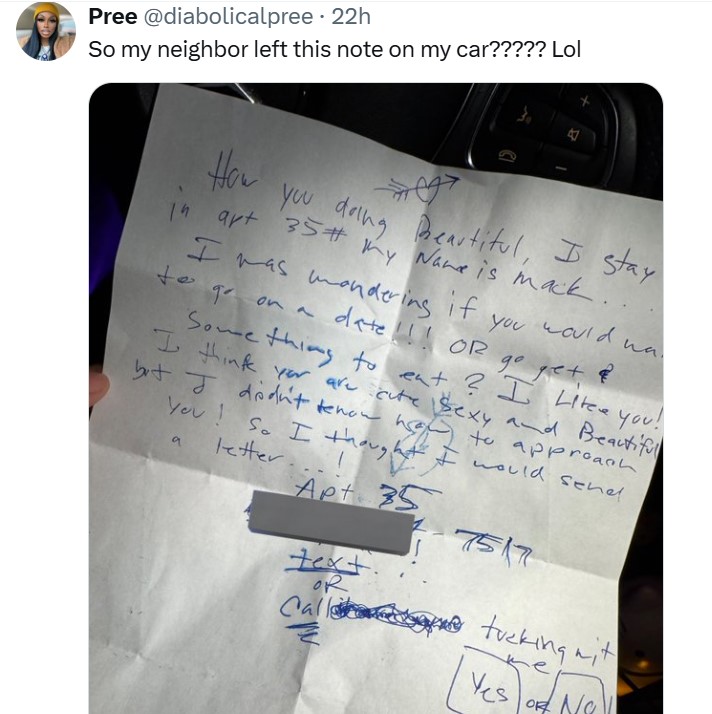 Pree @diabolicalpree · 22h
So my neighbor left this note on my car????? Lol
How you doing Beautiful, I stay
in apt 35# my Name is mack...
I was wondering if you would
to go on a date!!! OR go get
Something to eat? I Like you!
I think you are cute sexy and Beautiful
but I didn't know how to approach
you! So I thought I would send
a letter...!
Apt 35
- 7517
text...
OR
Call
fucking wit
me
Yes OR No